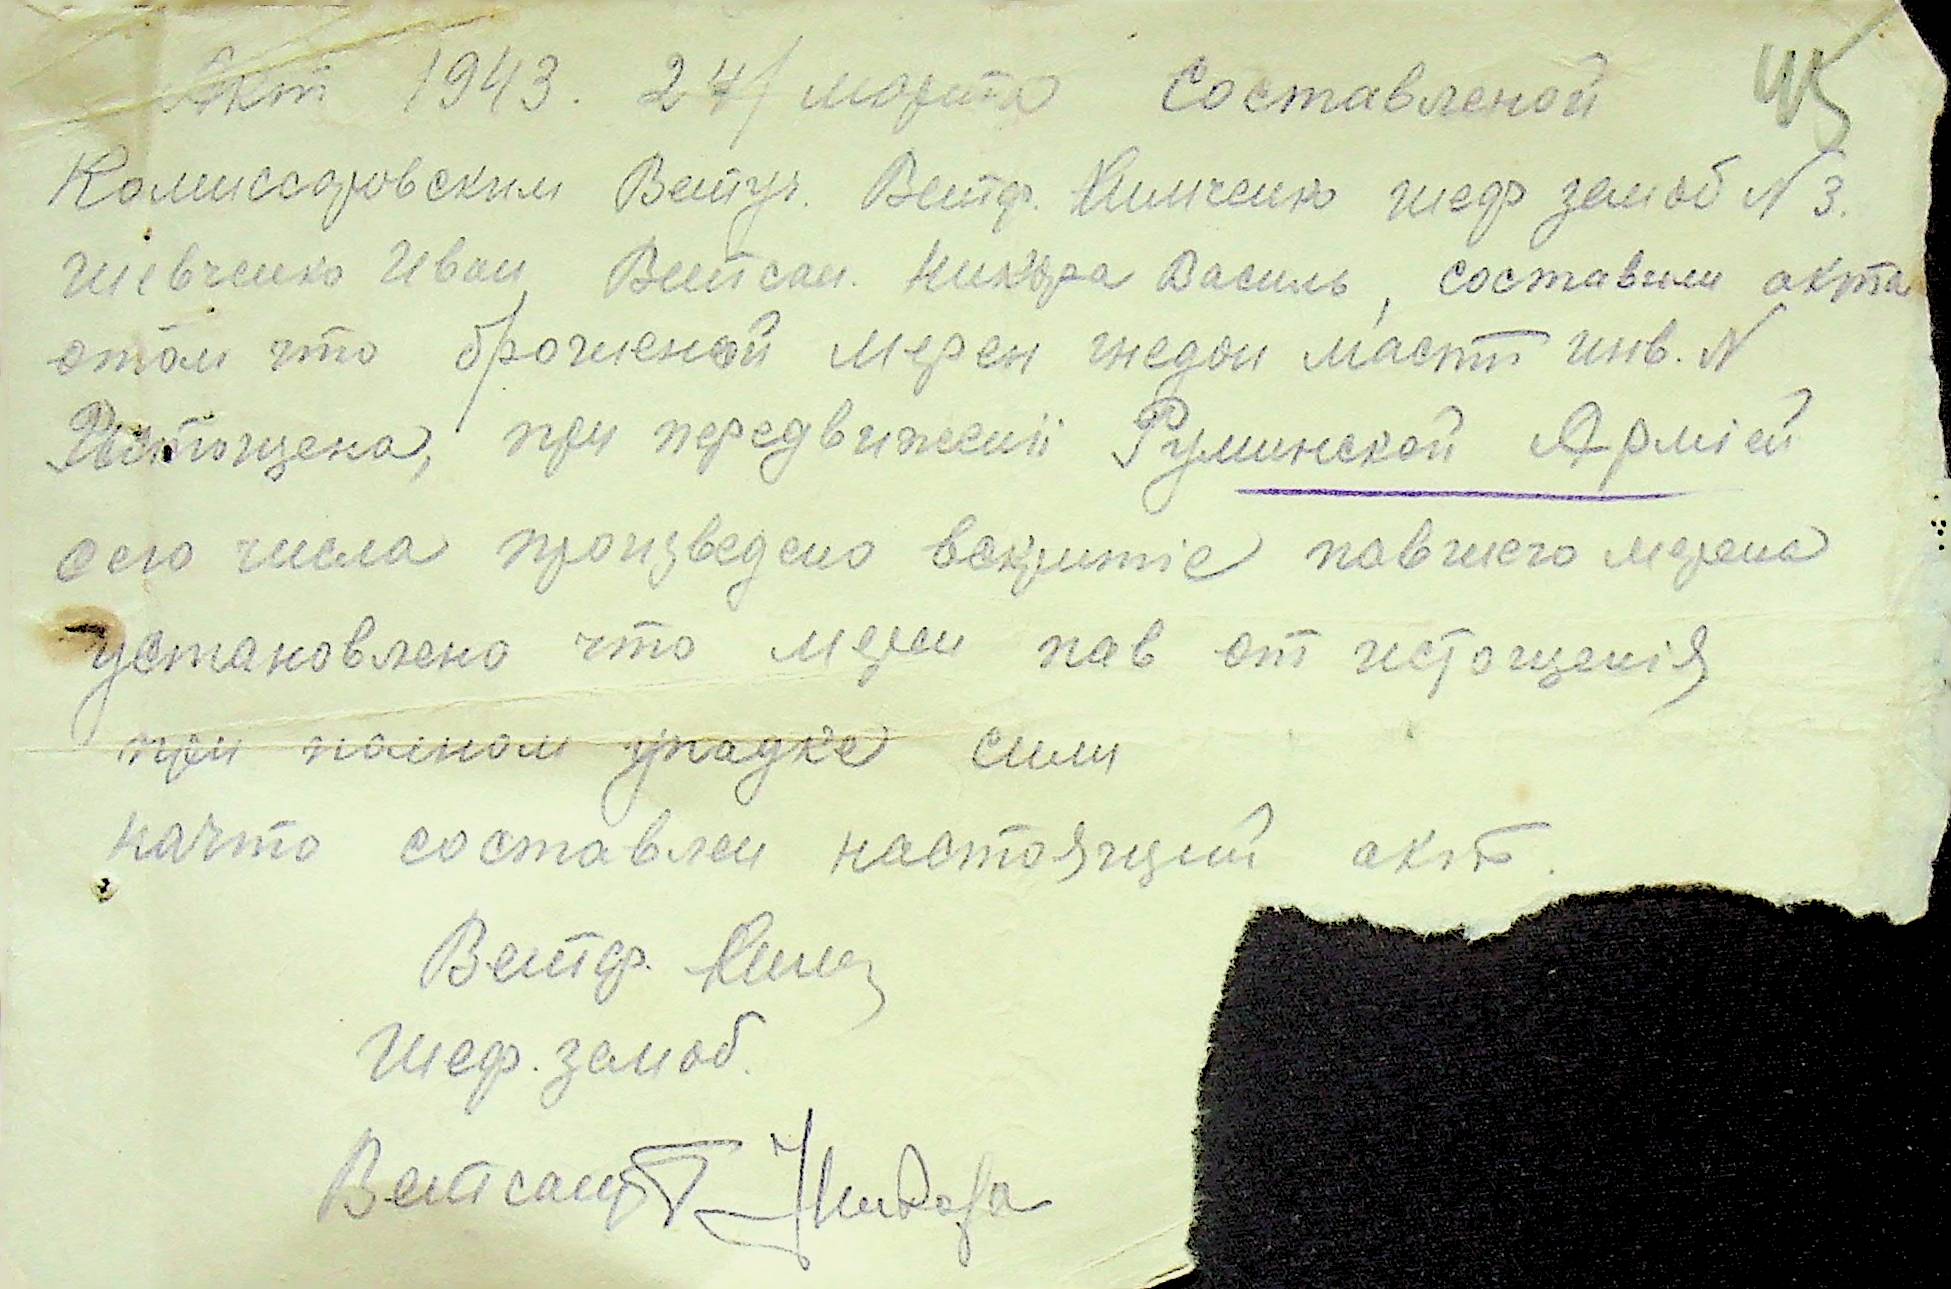 Акт 1943. 24/ марта Составленой
Комиссаровским Ветуч. Ветф. Кимченко шеф замоб N 3.
Шевченко Иван Ветсан. Никора Василь, составили акт а
отом что брошеной мерен гнедои масти инв. N
Ростощена, при передвижениі Руминской Армієй
сего числа произведено вскритіе павшего мерена
установлено что мерен пав от истощенія
при полном упадке сили
начто составлен настоящий акт.
Ветф.
Шеф. замоб.
Ветсанит Никора